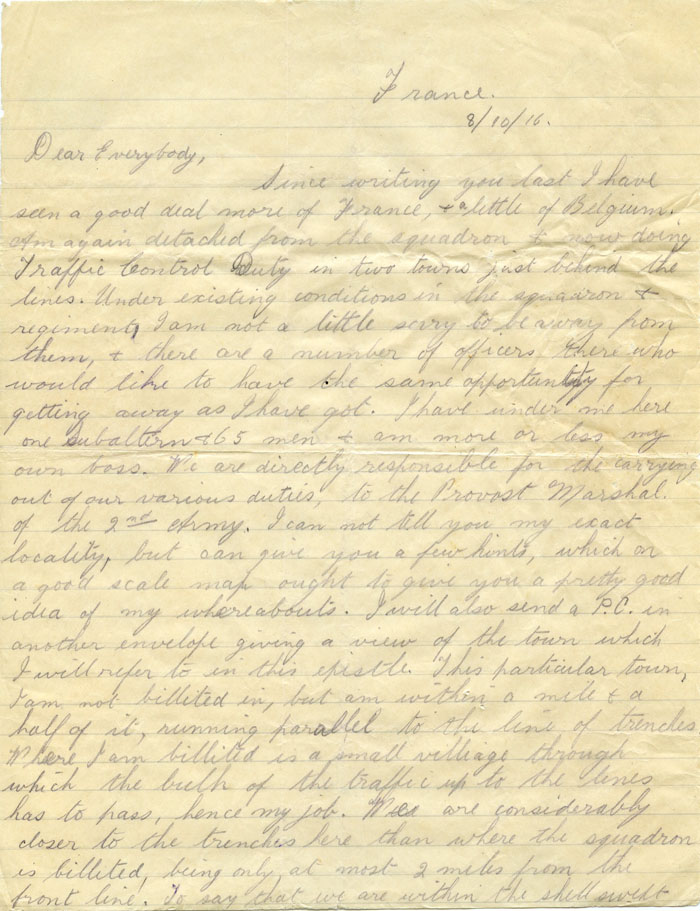 France.
8/10/16.
Dear Everybody,
Since writing you last I have
seen a good deal more of France, & a little of Belgium.
Am again detached from the squadron & now doing
Traffic Control Duty in two towns just behind the
lines. Under existing conditions in the squadron &
regiment, I am not a little sorry to be away from
them, & there are a number of officers there who
would like to have the same opportunity for
getting away as I have got. I have under me here
one subaltern & 65 men & am more or less my
own boss. We are directly responsible for the carrying
out of our various duties, to the Provost Marshal.
of the 2nd Army. I can not tell you my exact
locality, but can give you a few hints, which on
a good scale map ought to give you a pretty good
idea of my whereabouts. I will also send a P.C. in
another envelope giving a view of the town which
I will refer to in this epistle. This particular town,
I am not billeted in, but am within a mile & a
half of it, running parallel to the line of trenches
Where I am billited is a small village through
which the bulk of the traffic up to the lines
has to pass, hence my job. We are considerably
closer to the trenches here than where the squadron
is billeted, being only, at most 2 miles from the
front line. To say that we are within the shell swept